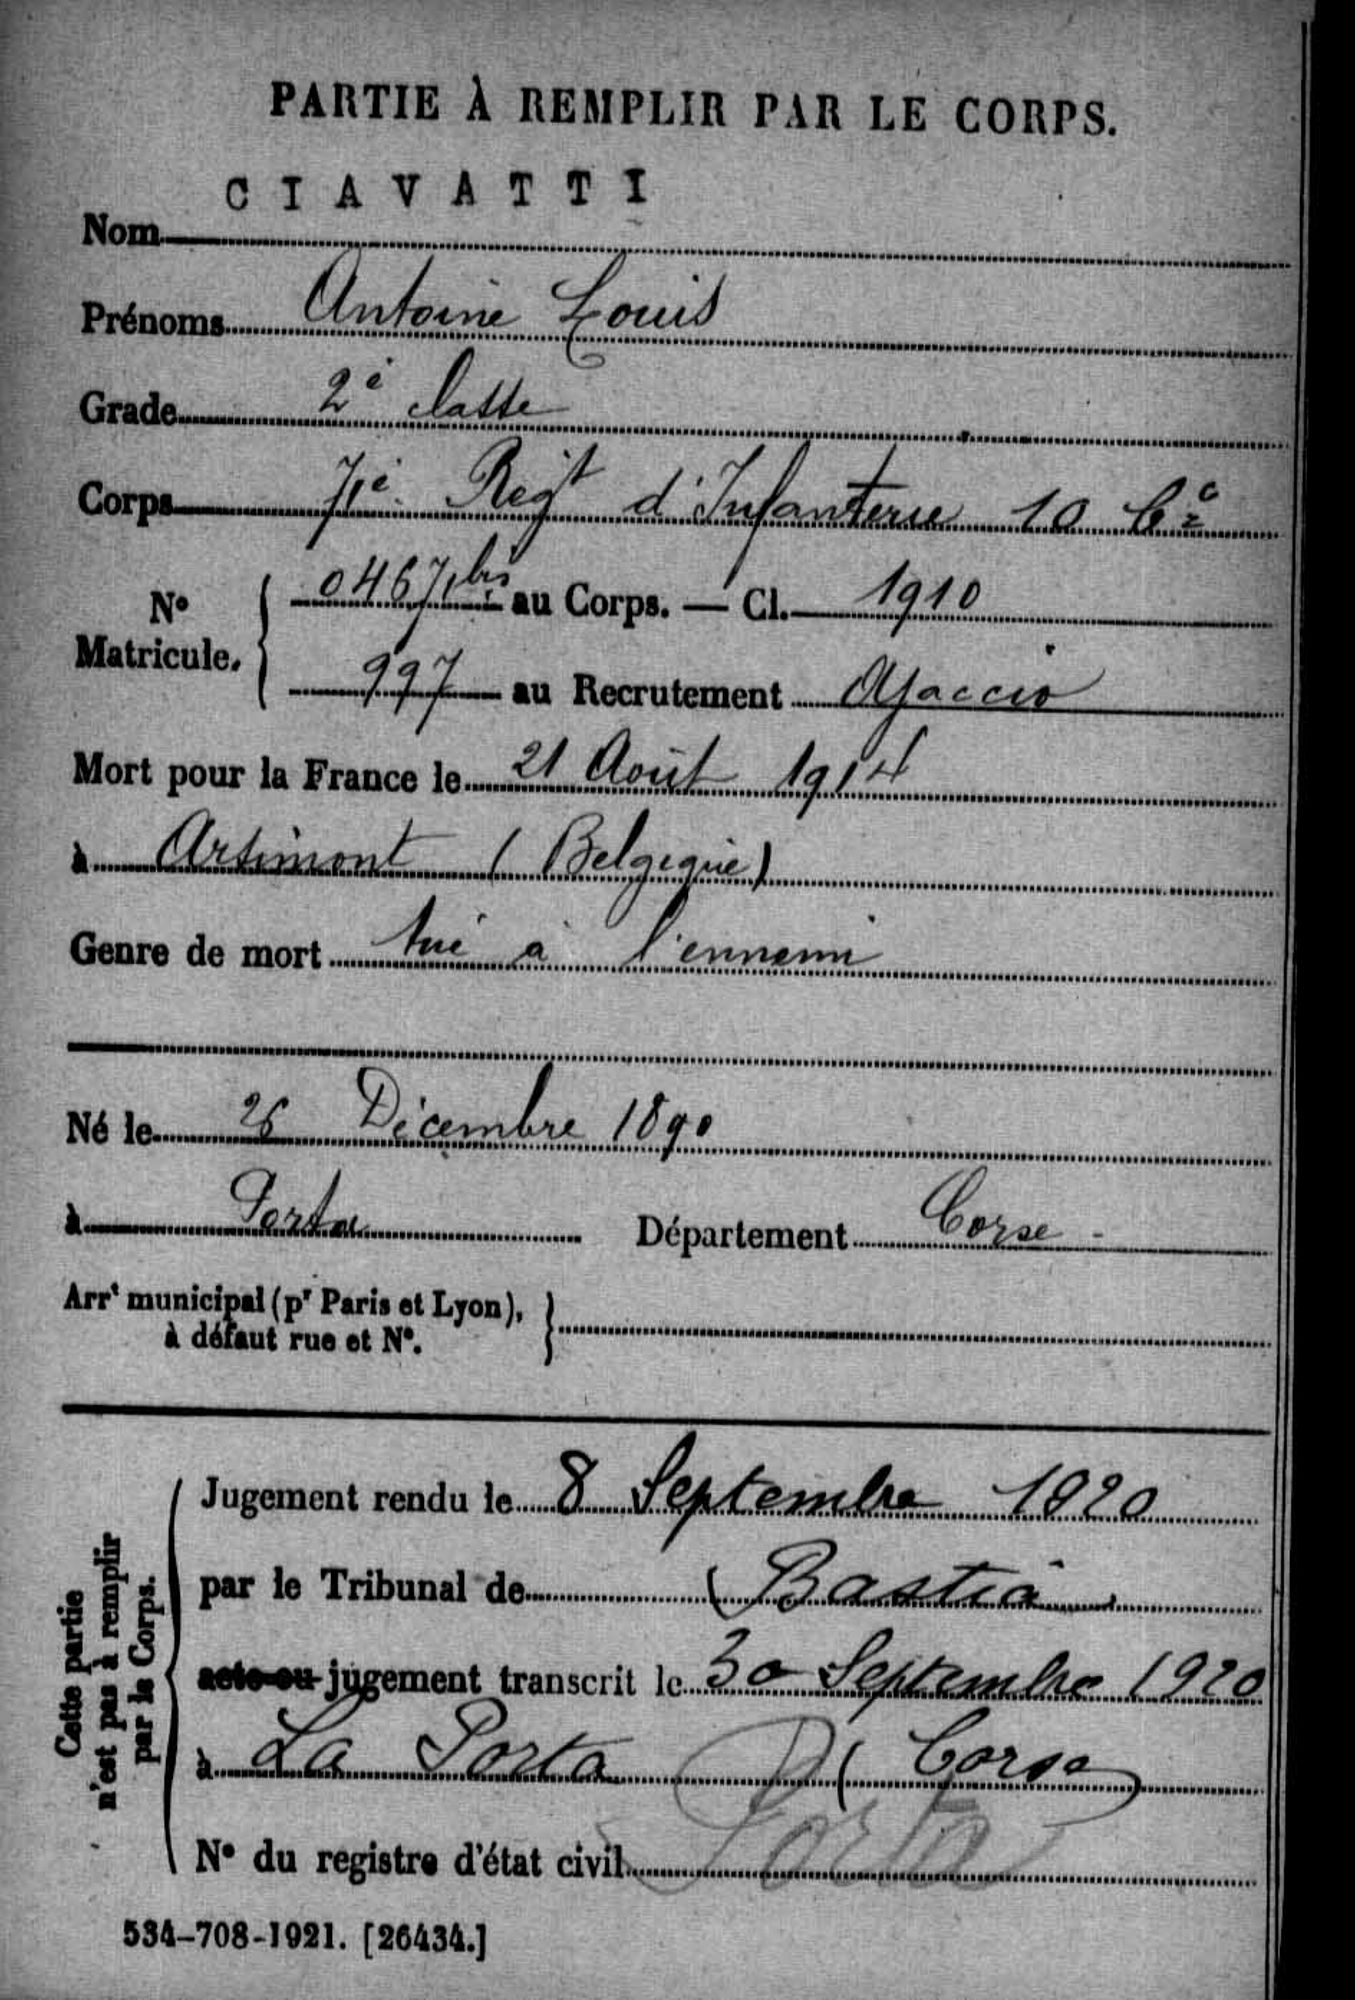 PARTIE À REMPLIR PAR LE CORPS.
CIAVATTI
Nom
Prénoms Antoine Louis
Grade 2e classe
Corps 71e Régt d'Infanterie 10 Cie
No Matricule. 04671 bis au Corps. — Cl. 1910
997 au Recrutement Ajaccio
Mort pour la France le 21 Août 1914
à Arsimont (Belgique)
Genre de mort tué à l'ennemi
Né le 26 Décembre 1890
à Porta Département Corse -
Arrt municipal (pr Paris et Lyon),
à défaut rue et No.
Cette partie
n'est pas à remplir
par le Corps.
Jugement rendu le 8 Septembre 1920
par le Tribunal de (Bastia)
acte ou jugement transcrit le 30 Septembre 1920
à La Porta (Corse)
Porta
No du registre d'état civil
534-708-1921. [26434.]